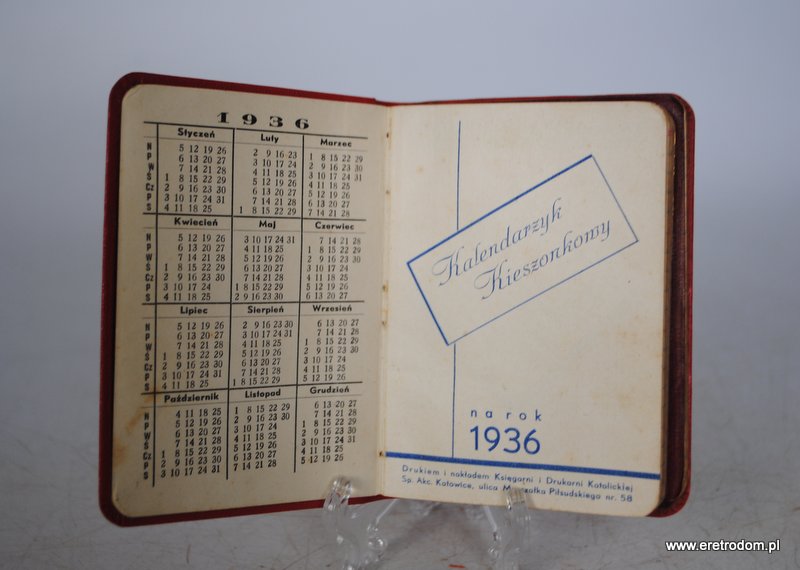 1936
Styczeń Luty Marzec
N 5 12 19 26 2 9 16 23 1 8 15 22 29
P 6 13 20 27 3 10 17 24 2 9 16 23 30
W 7 14 21 28 4 11 18 25 3 10 17 24 31
Ś 1 8 15 22 29 5 12 19 26 4 11 18 25
Cz 2 9 16 23 30 6 13 20 27 5 12 19 26
P 3 10 17 24 31 7 14 21 28 6 13 20 27
S 4 11 18 25 1 8 15 22 29 7 14 21 28
Kwiecień Maj Czerwiec
N 5 12 19 26 3 10 17 24 31 7 14 21 28
P 6 13 20 27 4 11 18 25 1 8 15 22 29
W 7 14 21 28 5 12 19 26 2 9 16 23 30
Ś 1 8 15 22 29 6 13 20 27 3 10 17 24
Cz 2 9 16 23 30 7 14 21 28 4 11 18 25
P 3 10 17 24 1 8 15 22 29 5 12 19 26
S 4 11 18 25 2 9 16 23 30 6 13 20 27
Lipiec Sierpień Wrzesień
N 5 12 19 26 2 9 16 23 30 6 13 20 27
P 6 13 20 27 3 10 17 24 31 7 14 21 28
W 7 14 21 28 4 11 18 25 1 8 15 22 29
Ś 1 8 15 22 29 5 12 19 26 2 9 16 23 30
Cz 2 9 16 23 30 6 13 20 27 3 10 17 24
P 3 10 17 24 31 7 14 21 28 4 11 18 25
S 4 11 18 25 1 8 15 22 29 5 12 19 26
Październik Listopad Grudzień
N 4 11 18 25 1 8 15 22 29 6 13 20 27
P 5 12 19 26 2 9 16 23 30 7 14 21 28
W 6 13 20 27 3 10 17 24 1 8 15 22 29
Ś 7 14 21 28 4 11 18 25 2 9 16 23 30
Cz 1 8 15 22 29 5 12 19 26 3 10 17 24 31
P 2 9 16 23 30 6 13 20 27 4 11 18 25
S 3 10 17 24 31 7 14 21 28 5 12 19 26
Kalendarzyk
Kieszonkowy
na rok
1936
Drukiem i nakładem Księgarni i Drukarni Katolickiej
Sp. Akc. Katowice, ulica Marszałka Piłsudskiego nr. 58
www.eretrodom.pl